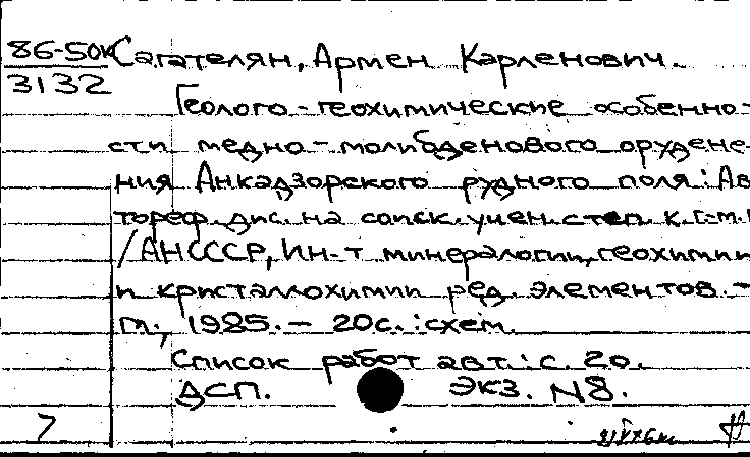 86-50к Сагателян, Армен Карленович.
3132
Геолого-геохимические особенно-
сти медно-молибденового орудене-
ния Анкадзорского рудного поля: Ав
тореф. дис. на соиск. учен. степ. к.г.-м.н
/АН СССР, Ин-т минералогии, геохимии
и кристаллохимии ред. элементов. -
М., 1985. - 20с.: схем.
Список работ авт.: с. 20.
ДСП. Экз. N8.
7